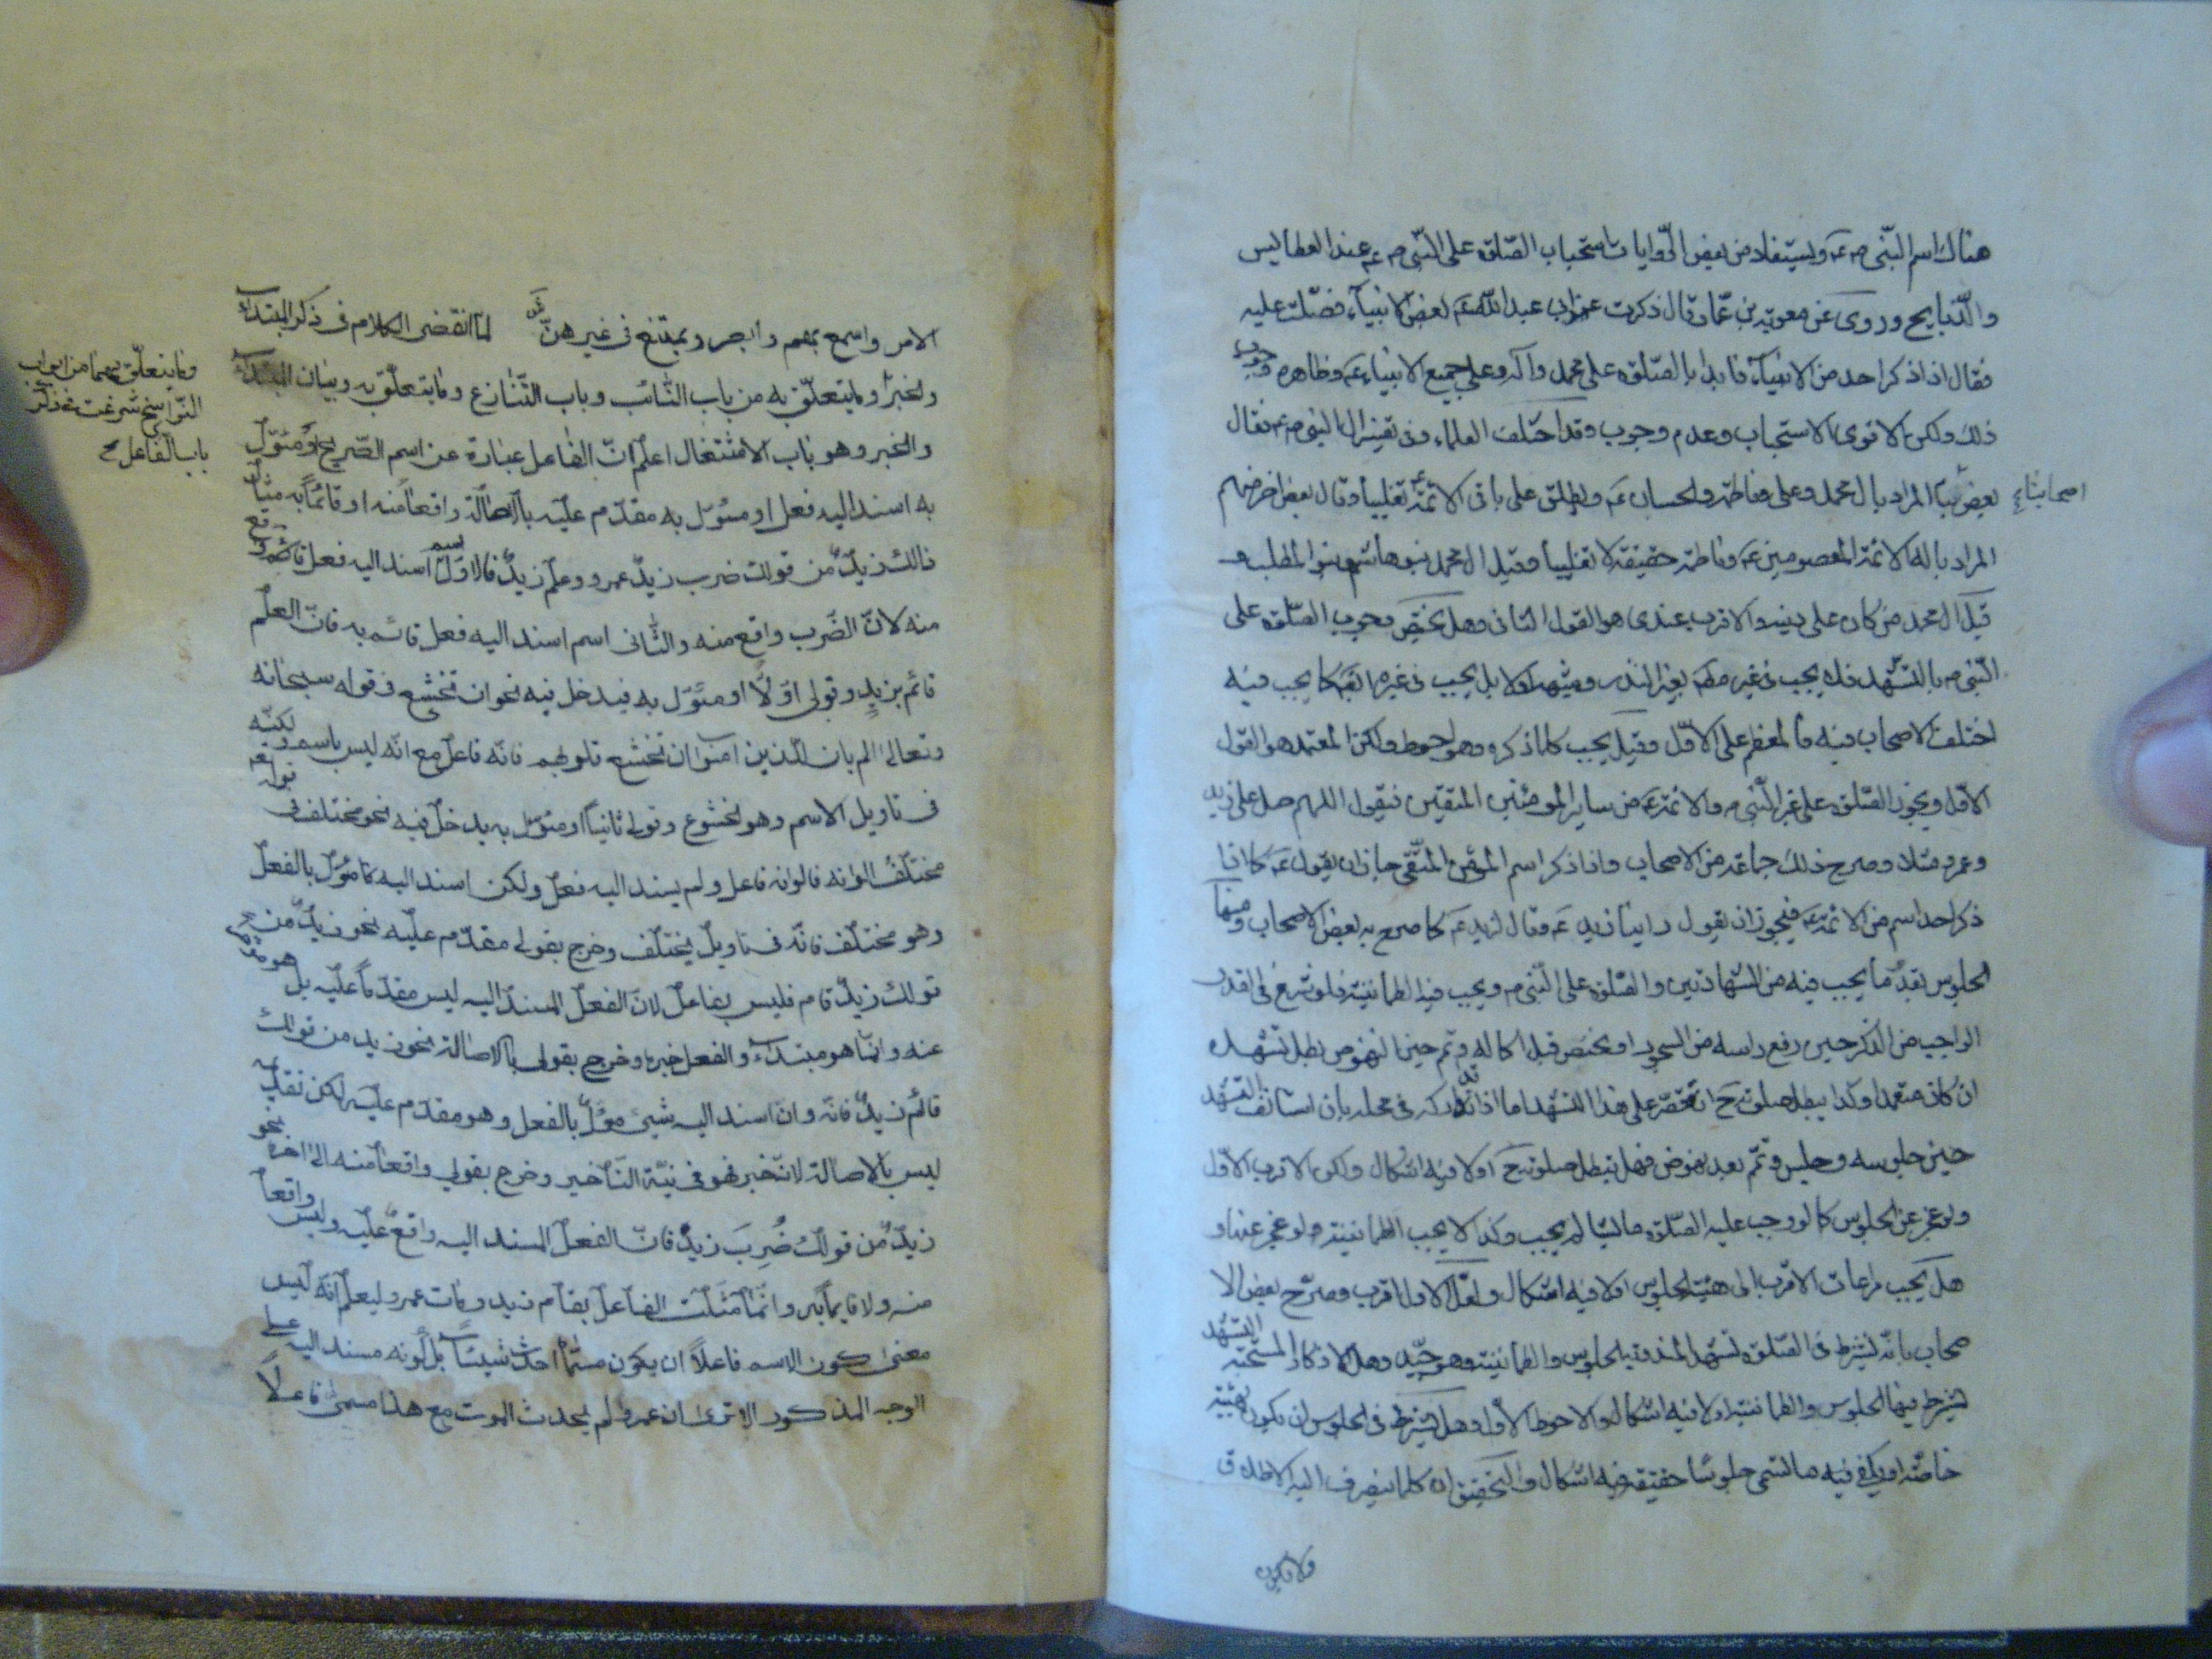 هناك اسم النبى ص ع و يستفاد من بعض الروايات استحباب الصلوة على النبى ص ع عند العطاس
والذبايح وروى عن معوية بن عمار قال ذكرت عند ابى عبد الله ع بعض الانبياء فصليت عليه
فقال اذا ذكر احد من الانبياء فابدا بالصلوة على محمد وآله وعلى جميع الانبياء ع وظاهره وجوب
ذلك ولكن الاقوى الاستحباب وعدم وجوب وقد اختلف العلماء فى تفسير ال النبى ص ع فقال
بعض اصحابنا المراد بال محمد وعلى وفاطمة والحسنان ع ويطلق على باقى الائمة ع تغليبا وقال بعض اخر منهم
المراد باله الائمة المعصومين ع وفاطمة حقيقة لا تغليبا وقيل ال محمد بنو هاشم وبنو المطلب و
قيل ال محمد من كان على دينه والاقرب عندى هو القول الثانى وهل يختص وجوب الصلوة على
النبى ص بالتشهد فلا يجب فى غيره بغير النذر وشبهه اولا بل يجب فى غيره ايضا كما يجب فيه
اختلف الاصحاب فيه فالمعظم على الاول وقيل يجب كلما ذكره وهو احوط ولكن المعتمد هو القول
الاول ويجوز الصلوة على غير النبى ص والائمة ع من ساير المومنين المتقين فيقول اللهم صل على زيد
وعمرو مثلا وصرح ذلك جماعة من الاصحاب واذا ذكر اسم المؤمن المتقى جاز ان يقول ع كما اذا
ذكر احد اسم من الائمة ع فيجوز ان يقول راينا زيد ع وقال لزيد ع كما صرح به بعض الاصحاب ومنها
الجلوس بقدر ما يجب فيه من الشهادتين والصلوة على النبى ص ويجب فيه الطمانينة فلو شرع فى القدر
الواجب من الذكر حين رفع راسه من السجود او قبل اكماله وتمم حين النهوض بطل تشهده
ان كان متعمدا وكذا يبطل صلوته ح ان اقتصر على هذا التشهد اما اذا تداركه فى محله بان استانف التشهد
حين جلوسه وجلس وتمم بعد نهوض فهل تبطل صلوته ح اولا فيه اشكال ولكن الاقرب الاول
ولو عجز عن الجلوس كما لو وجب عليه الصلوة ماشيا لم يجب وكذا لا يجب الطمانينة ولو عجز عنها و
هل يجب مراعات الاقرب الى هيئة الجلوس اولا فيه اشكال ولعل الاول اقرب وصرح بعض الا
صحاب بانه يشترط فى الصلوة لتشهد المندوبة الجلوس والطمانينة وهو جيد وهل الاذكار المستحبة التشهد
يشترط فيها الجلوس والطمانينة اولا فيه اشكال والاحوط الاول وهل يشترط فى الجلوس ان يكون بهيئة
خاصة او يكفى فيه ما يسمى جلوسا حقيقة فيه اشكال والتحقيق ان كلما ينصرف اليه الاطلاق
ولا يكون
الامر واسمع بهم وابصر ويمتنع فى غيرهن لما انقضى الكلام فى ذكر المبتداء
والخبر وما يتعلق به من باب النائب وباب التنازع وما يتعلق به وبيان المبتداء
وما يتعلق بهما من ابواب
النواسخ شرعت فى ذكر
باب الفاعل
والخبر وهو باب الاشتغال اعلم ان الفاعل عبارة عن اسم الصريح او مئول
به اسند اليه فعل او مئول به مقدم عليه بالاصالة واقعا منه او قائما به مثال
ذالك زيد من قولك ضرب زيد عمرو وعلم زيد فالاول اسم اسند اليه فعل واقع
منه لان الضرب واقع منه والثانى اسم اسند اليه فعل قائم به فان العلم
قائم بزيد وقولى اولا او مئول به فيدخل فيه نحو ان تخشع فى قوله سبحانه
وتعالى الم يان للذين امنوا ان تخشع قلوبهم فانه فاعل مع انه ليس باسم ولكنه
فى تاويل الاسم وهو الخشوع وقولى ثانيا او مئول به يدخل فيه نحو مختلف فى قوله تعا
مختلف الوانه فالوانه فاعل ولم يسند اليه فعل ولكن اسند اليه ما مئول بالفعل
وهو مختلف فانه فى تاويل يختلف وخرج بقولى مقدم عليه نحو زيد من
قولك زيد قام فليس بفاعل لان الفعل المسند اليه ليس مقدما عليه بل هو مؤخر
عنه وانما هو مبتداء والفعل خبره وخرج بقولى بالاصالة نحو زيد من قولك
قائم زيد فانه وان اسند اليه شيئ مئول بالفعل وهو مقدم عليه لكن تقديمه
ليس بالاصالة لانه خبر فهو فى نية التاخير وخرج بقولى واقعا منه الى اخره نحو
زيد من قولك ضُرِبَ زيد فان الفعل المسند اليه واقع عليه وليس واقعا
منه ولا قايما به وانما مثلت الفاعل بقام زيد ومات عمرو ليعلم انه ليس
معنى كون الاسم فاعلا ان يكون مسماه احدث شيئا بل كونه مسند اليه على
الوجه المذكور الا ترى ان عمرو لم يحدث الموت مع هذا مسمى فاعلا